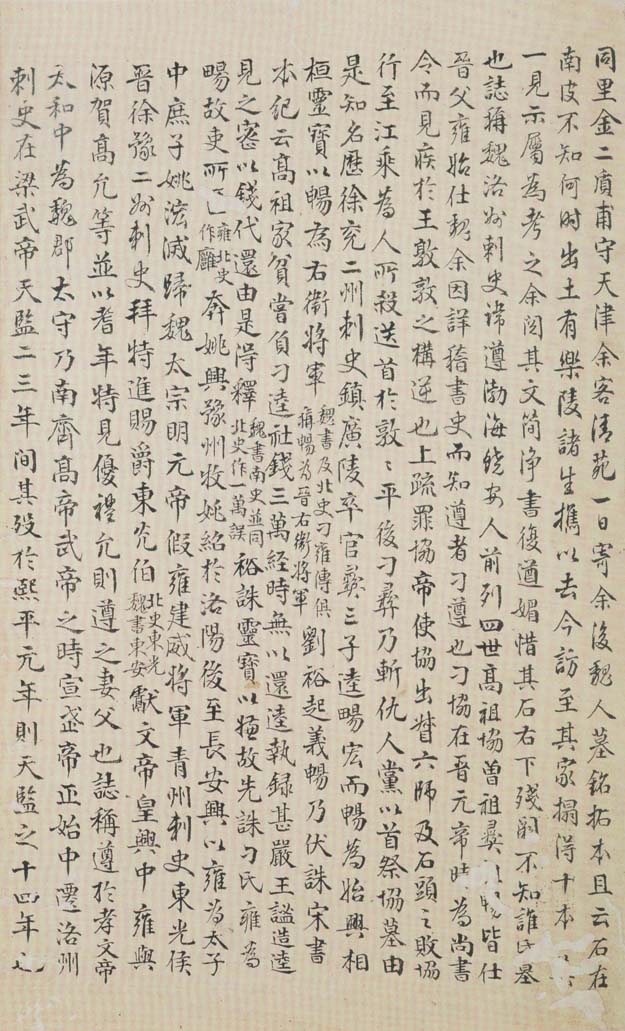 同里金二瀆甫守天津余客清苑一日寄余後魏人墓銘拓本且云石在
南皮不知何时出土有樂陵諸生攜以去今訪至其家搨得十本
一見示屬為考之余閱其文简浄書復遒媚惜其石右下残闕不知誰氏墓
也誌稱魏洛州刺史諱遵渤海饒安人前列四世高祖協曽祖彜皆仕
晉父雍始仕魏余因詳稽書史而知遵者刁遵也刁協在晉元帝時為尚書
令而見疾於王敦敦之構逆也上疏罪協帝使協出督六師及石頭之敗協
行至江乘為人所殺送首於敦〻平後刁彜乃斬仇人黨以首祭協墓由
是知名歷徐兗二州刺史鎮廣陵卒官彜三子逵暢宏而暢為始興相
桓靈寶以暢為右衞將軍魏書及北史刁雍傳俱稱暢為晉右衞將軍劉裕起義暢乃伏誅宋書
本纪云高祖家貧嘗負刁逵社錢三萬经時無以還逵執録甚嚴王謐造逵
見之密以錢代還由是得釋魏書南史並同北史作一萬誤裕誅靈寶以嫌故先誅刁氏雍為
暢故吏所匿雍北史作廱奔姚興豫州牧姚紹於洛陽後至長安興以雍為太子
中庶子姚泓滅歸魏太宗明元帝假雍建威將軍青州刺史東光侯
晉徐豫二州刺史拜特進賜爵東光伯北史東光魏書東安獻文帝皇興中雍與
源賀高允等並以耆年特見優禮允則遵之妻父也誌稱遵於孝文帝
太和中為魏郡太守乃南齊高帝武帝之時宣武帝正始中遷洛州
刺史在梁武帝天監二三年间其殁於熙平元年則天監之十四年也